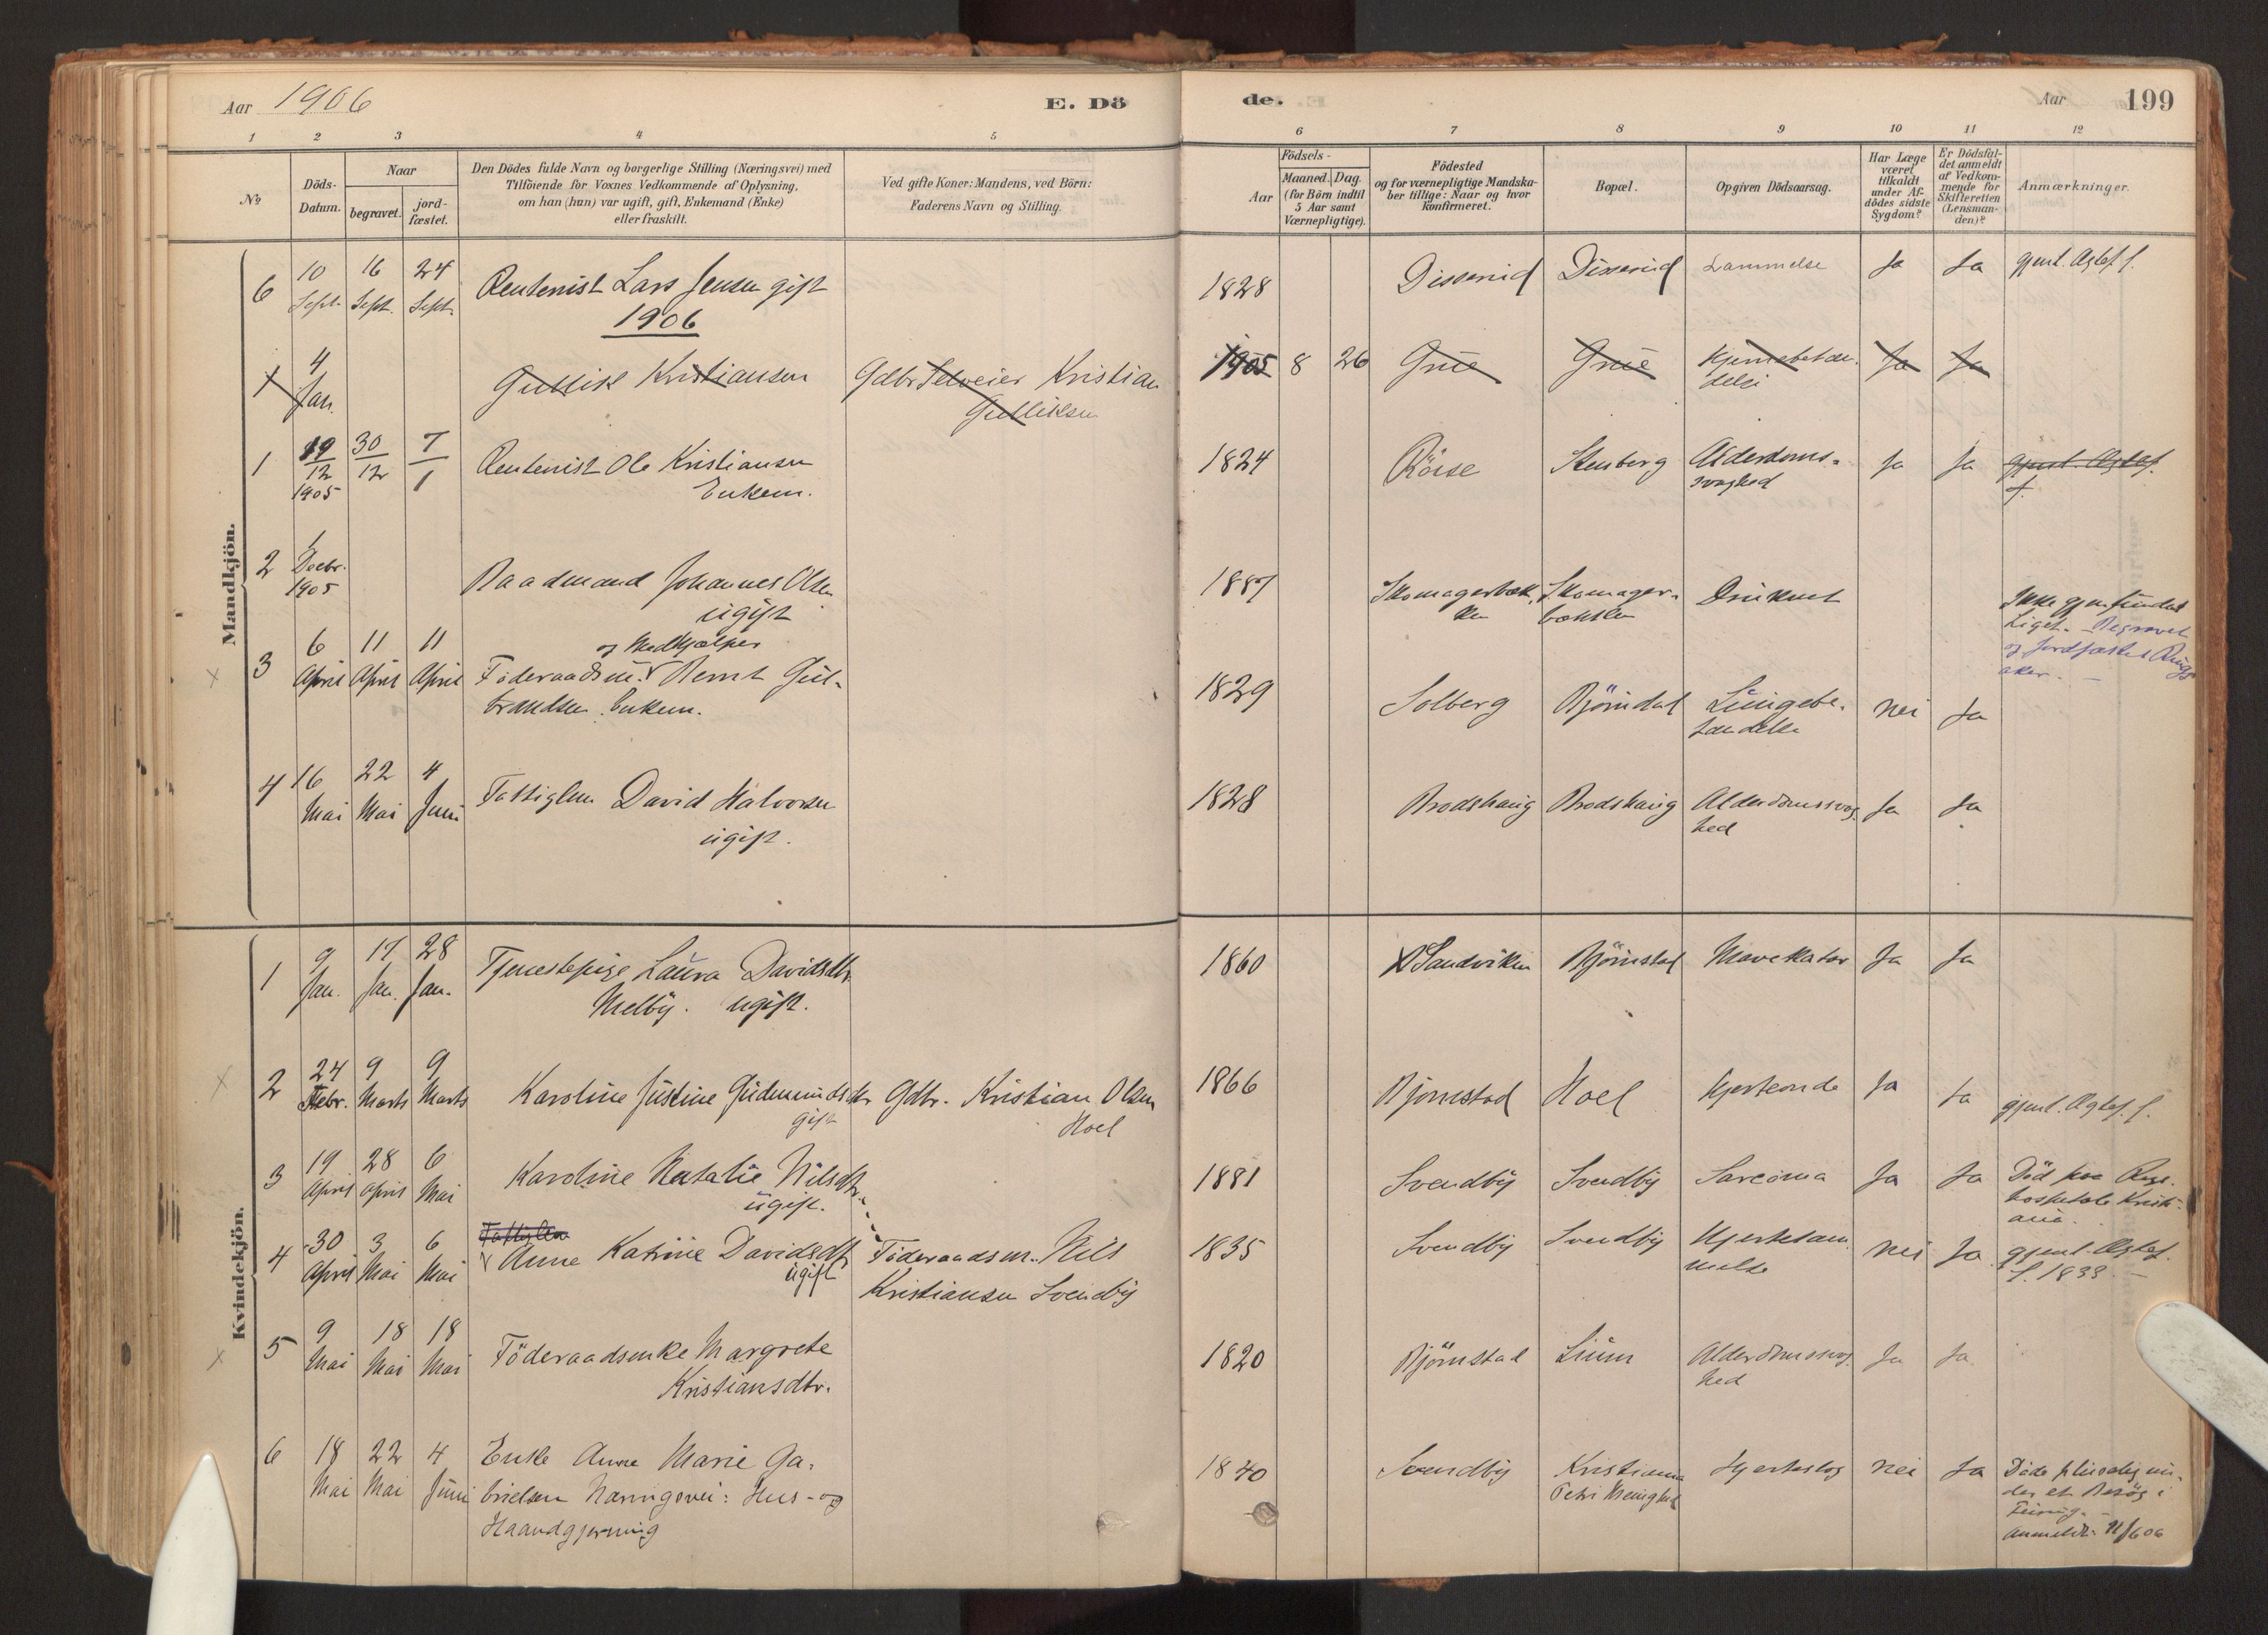 Aar 1906
E. Dö
de.
Aar 199
1 2 3 4 5 6 7 8 9 10 11 12
No
Döds-
Datum.
Naar
begravet.
jord-
fæstet.
Den Dödes fulde Navn og borgerlige Stilling (Næringsvei) med
Tilföiende for Voxnes Vedkommende af Oplysning,
om han (hun) var ugift, gift, Enkemand (Enke)
eller fraskilt.
Ved gifte Koner: Mandens, ved Börn:
Faderens Navn og Stilling.
Födsels-
Aar
Maaned. Dag.
(for Börn indtil
5 Aar samt
Værnepligtige).
Födested
og for værnepligtige Mandska-
ber tillige: Naar og hvor
konfirmeret.
Bopæl.
Opgiven Dödsaarsag.
Har Læge
været
tilkaldt
under Af-
dödes sidste
Sygdom?
Er Dödsfal-
det anmeldt
af Vedkom-
mende for
Skifteretten
(Lensman-
den)?
Anmærkninger.
Mandkjön.
6 10 Sept. 16 Sept. 24 Sept. Rentenist Lars Jensen gift 1828 Disserud Disserud Lammelse Ja Ja gjenl. Ægtef. f.
1906
1 4 Jan. Gullik Kristiansen Gdbr Selveier Kristian
Gulliksen
1905 8 26 Grue Grue Ja Ja
1 19/12 1905 30/12 7/1 Rentenist Ole Kristiansen
Enkem.
1824 Röise Stenberg Alderdoms-
svaghed
Ja Ja gjenl. Ægtef.
f.
2 1 Decbr. 1905 Baadmand Johannes Olsen
ugift
1887 Skomagerbæk-
ken
Skomager-
bækken
Druknet
Ikke gjenfundet
Liget. - Begravet
og jordfæstet Rings-
aker. -
3 6 April 11 April 11 April og Medhjælper
Föderaadsm. Bernt Gul-
brandsen Enkem.
1829 Solberg Björndal Lungebe-
tændelse
Nei Ja
4 16 Mai 22 Mai 4 Juni Fattiglem David Halvorsen
ugift.
1828 Brodshaug Brodshaug Alderdomssvag-
hed
Ja Ja
Kvindekjön.
1 9 Jan. 17 Jan. 28 Jan. Tjenestepige Laura Davidsdtr
Melby. ugift.
1860 Sandviken Björnstad Mavekatar Ja Ja
2 24 Febr. 9 Marts 9 Marts Karoline Justine Gudmundsdtr
gift
Gdbr. Kristian Olsen
Hoel
1866 Bjørnstad Hoel Hjerteonde Ja Ja gjenl. Ægtef. f.
3 19 April 28 April 6 Mai Karoline Natalie Nilsdtr.
ugift.
1881 Svendby Svendby Sarcoma Ja Ja Död paa Rigs-
hospitalet Kristi-
ania.
4 30 April 3 Mai 6 Mai Fattiglem
Anne Katrine Davidsdtr
ugift
Föderaadsm. Nils
Kristiansen Svendby
1835 Svendby Svendby Nei Ja gjenl. Ægtef.
f. 1833 -
5 9 Mai 18 Mai 18 Mai Föderaadsenke Margrete
Kristiansdtr.
1820 Björnstad Lium Alderdomssvag-
hed
Ja Ja
6 18 Mai 22 Mai 4 Juni Enke Anne Marie Ga-
brielsen Næringsvei: Hus- og
Haandgjerning
1840 Svendby Kristiania
Petri Menighed
Hjerteslag Nei Ja Döde pludselig un-
der et Besög i
Feiring.
Anmeldt. 11/6 06